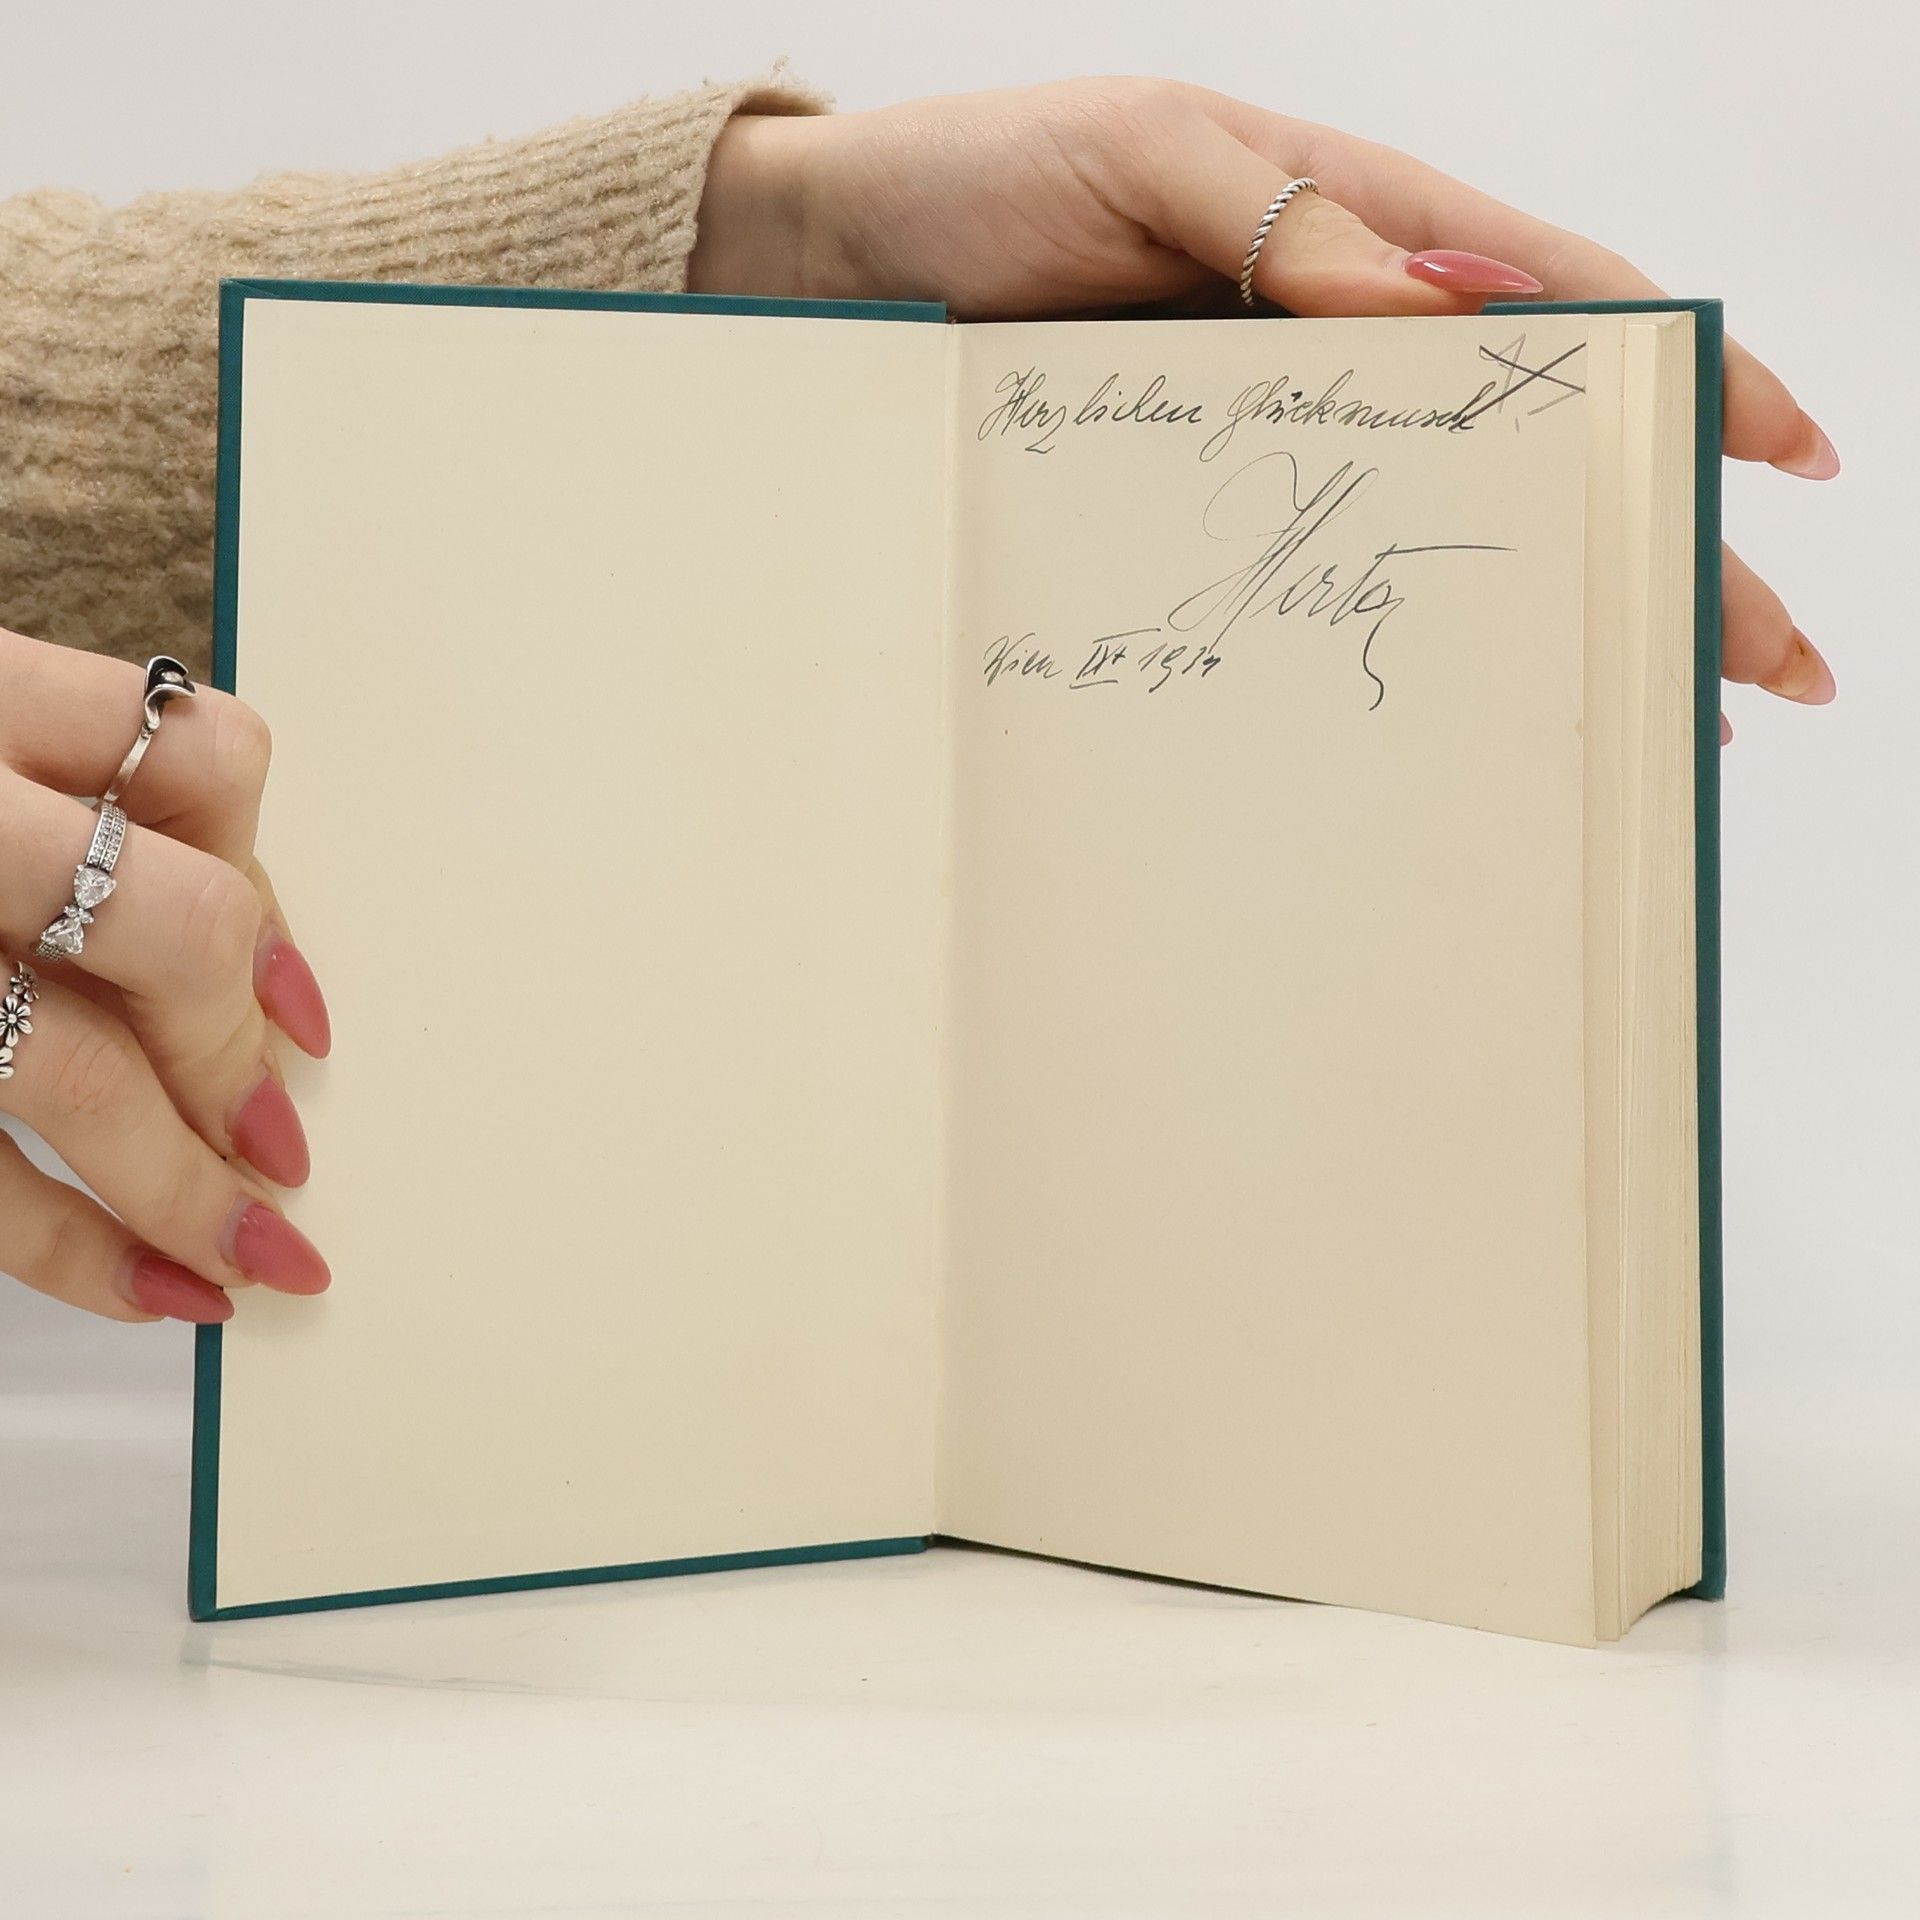 Herzlichen Glückwunsch
Herta
Wien IX